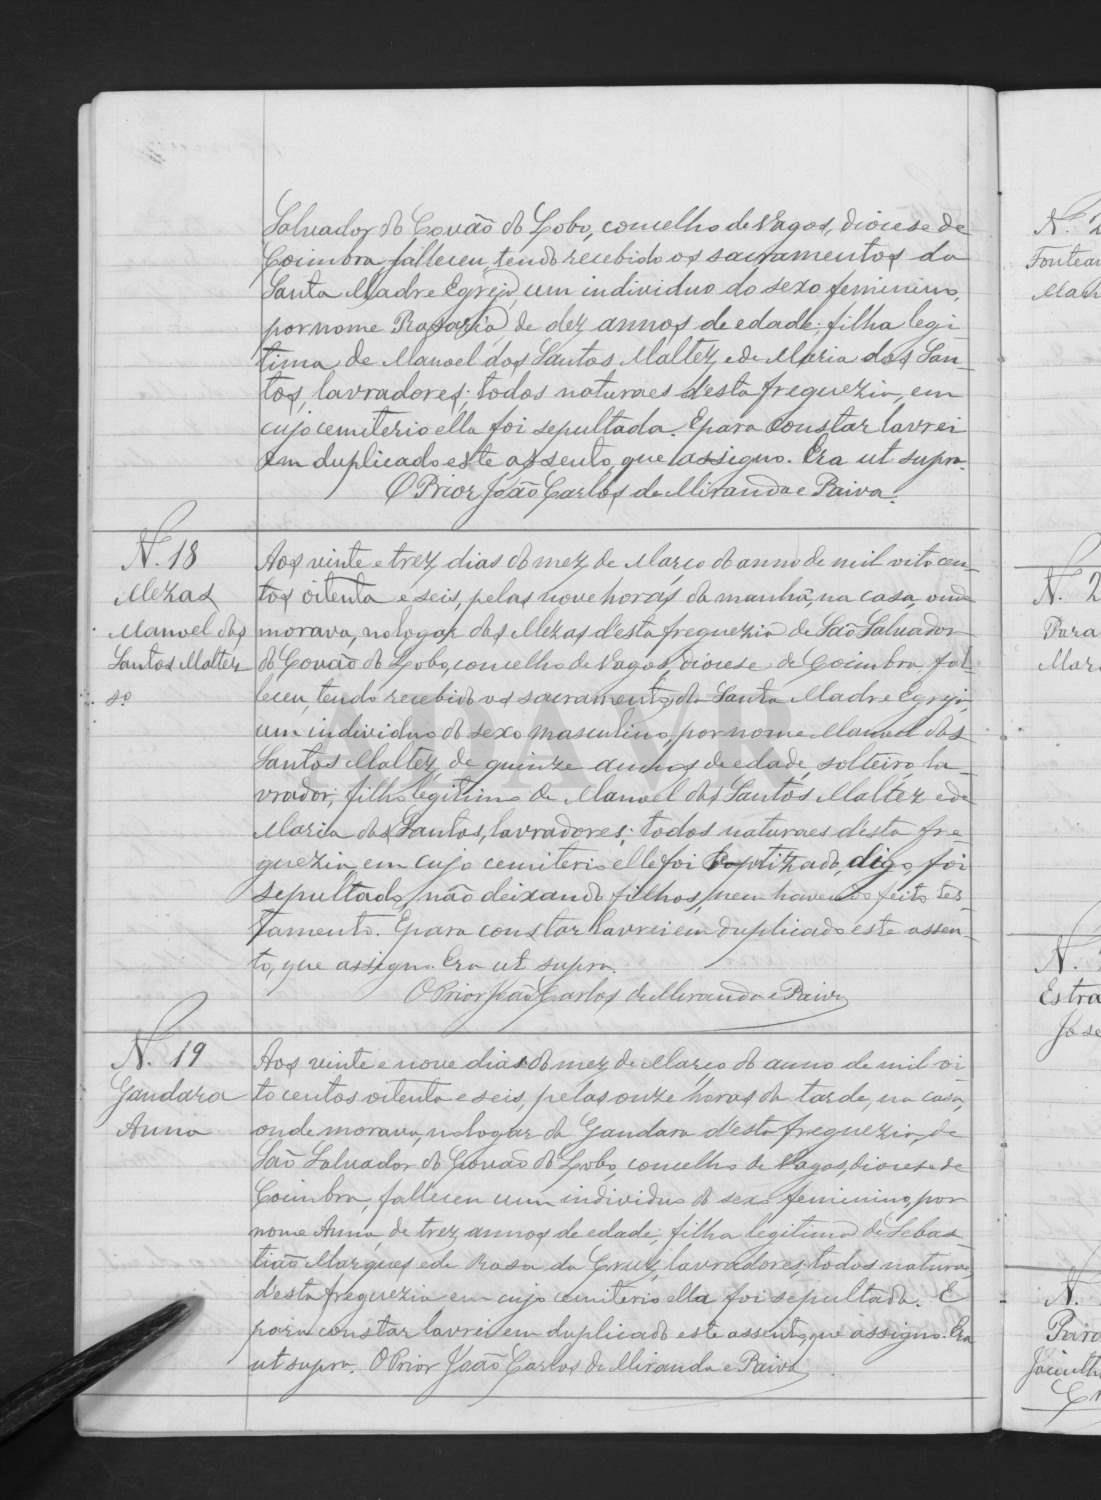 Salvador do Covão do Lobo, concelho de Vagos, diocese de
Coimbra falleceu, tendo recebido os sacramentos da
Santa Madre Egreja, um individuo do sexo feminino,
por nome Rosaria, de dez annos de edade; filha legi-
tima de Manoel dos Santos Maltez, e de Maria dos San-
tos, lavradores; todos naturaes d'esta freguezia, em
cujo cemiterio ella foi sepultada. E para constar lavrei
em duplicado este assento, que assigno. Era ut supra.
O Prior João Carlos de Miranda e Paiva.
N. 18
Mezas
Manoel dos
Santos Maltez
sº
Aos vinte e trez dias do mez de Março do anno de mil oitocen-
tos oitenta e seis, pelas nove horas da manhã, na casa, onde
morava, no logar das Mezas d'esta freguezia de São Salvador
do Covão do Lobo, concelho de Vagos, diocese de Coimbra fal-
leceu, tendo recebido os sacramentos da Santa Madre Egreja,
um individuo do sexo masculino, por nome Manoel dos
Santos Maltez, de quinze annos de edade, solteiro, la-
vrador; filho legitimo de Manoel dos Santos Maltez e de
Maria dos Santos, lavradores; todos naturaes d'esta fre-
guezia, em cujo cemiterio elle foi baptizado, digo, foi
sepultado, não deixando filhos, nem havendo feito tes-
tamento. E para constar lavrei em duplicado este assen-
to, que assigno. Era ut supra.
O Prior João Carlos de Miranda e Paiva
N. 19
Gandara
Anna
Aos vinte e nove dias do mez de Março do anno de mil oi-
tocentos oitenta e seis, pelas onze horas da tarde, na casa,
onde morava, no logar da Gandara d'esta freguezia, de
São Salvador do Covão do Lobo, concelho de Vagos, diocese de
Coimbra, falleceu um individuo do sexo feminino, por
nome Anna, de trez annos de edade; filha legitima de Sebas-
tião Marques e de Rosa da Cruz, lavradores; todos naturaes
d'esta freguezia em cujo cemiterio ella foi sepultada. E
para constar lavrei em duplicado este assento, que assigno. Era
ut supra. O Prior João Carlos de Miranda e Paiva
ADAVR
N. 2
Fontea
Man
N. 2
Para
Mar
N.
Estra
José
N.
Jacinth